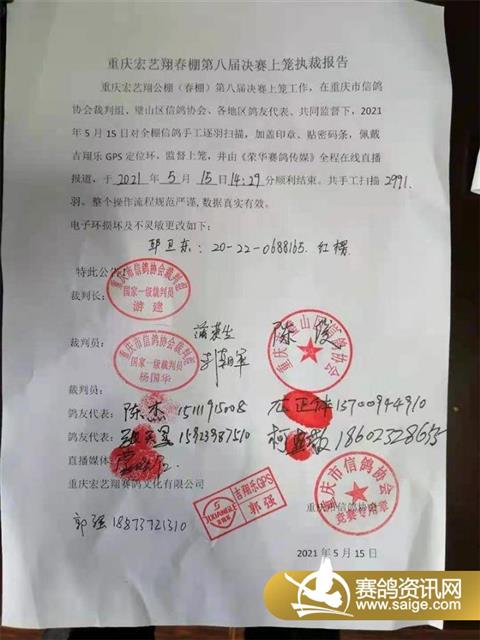 重庆宏艺翔春棚第八届决赛上笼执裁报告
重庆宏艺翔公棚（春棚）第八届决赛上笼工作，在重庆市信鸽
协会裁判组、璧山区信鸽协会、各地区鸽友代表、共同监督下，2021
年5月15日对全棚信鸽手工逐羽扫描，加盖印章、贴密码条，佩戴
吉翔乐GPS定位环，监督上笼，并由《荣华赛鸽传媒》全程在线直播
报道，于2021年5月15日14:29分顺利结束。共手工扫描2991
羽。整个操作流程规范严谨，数据真实有效。
电子环损坏及不灵敏更改如下：
卫东：20-22-0688165. 红楞
特此公告！
裁判长：
重庆市信鸽协会裁判组
国家一级裁判员
游建
裁判员：
重庆市信鸽协会裁判组
国家一级裁判员
杨国华
陈俊
山区信鸽协会
裁判员：
鸽友代表：陈杰 15111915008
13700944910
鸽友代表：
15923987510
直播媒体：
重庆宏艺翔赛鸽文化有限公司
吉翔乐GPS
郭强
JIXIANGLE
重庆市信鸽协会
竞赛专用章
重庆市信鸽协会
郭强 18873721310
2021年5月15日
赛鸽资讯网
www.saige.com